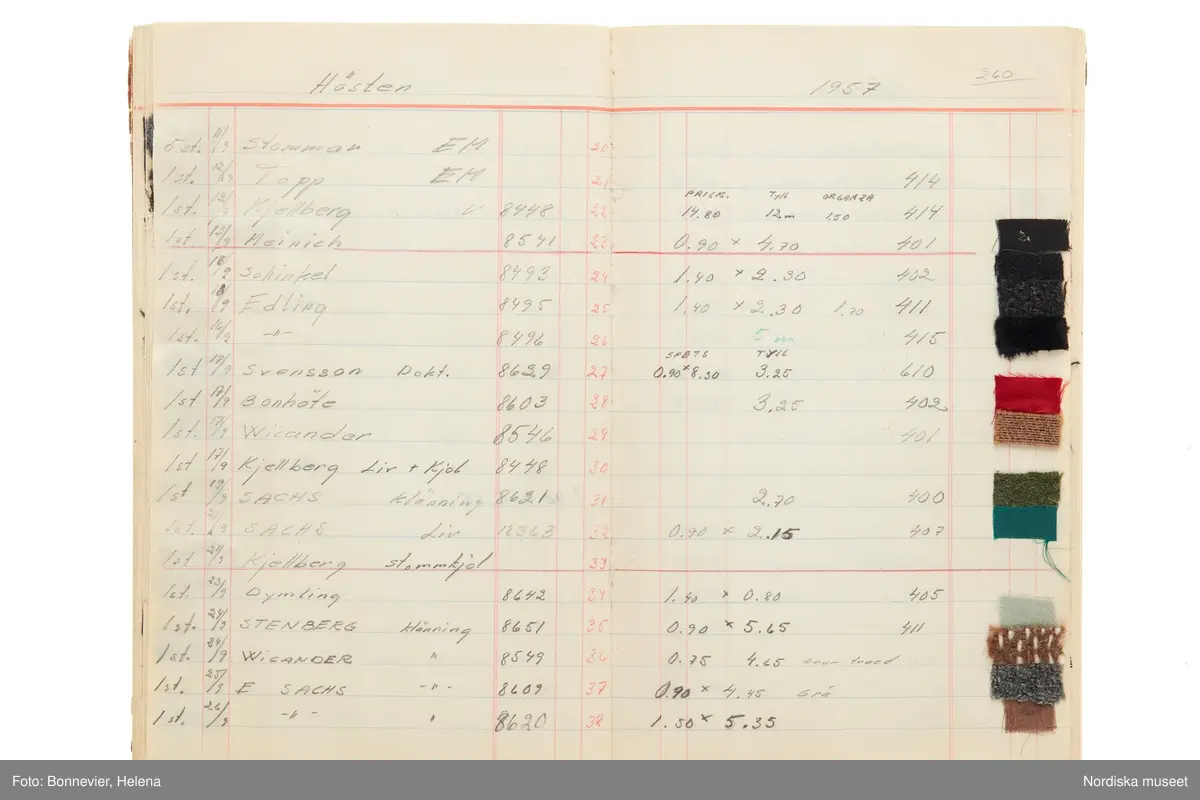 Hösten 1957 260
5 st. 11/9 Stommar EM 20
1 st. 12/9 Topp EM 21 414
PRICK. TYLL ORGANZA
1 st. 12/9 Kjellberg 8448 22 14.80 12m 1.50 414
1 st. 13/9 Heinich 8541 23 0.90 x 4.70 401
1 st. 18/9 Schinkel 8493 24 1.40 x 2.30 402
1 st. 18/9 Edling 8495 25 1.40 x 2.30 1.70 411
1 st. 16/9 -"- 8496 26 5 m 415
SPETS TYLL
1 st 17/9 Svensson Dokt. 8629 27 0.90 x 8.30 3.25 610
1 st 17/9 Bonhôte 8603 28 3.25 402
1 st. 17/9 Wicander 8546 29 401
1 st 17/9 Kjellberg Liv + Kjol 8448 30
1 st 19/9 SACHS Klänning 8621 31 2.70 400
1 st. 21/9 SACHS Liv 18363 32 0.90 x 2.15 407
1 st 21/9 Kjellberg Stommkjol 33
1 st. 23/9 Dymling 8642 34 1.40 x 0.80 405
1 st. 24/9 STENBERG Klänning 8651 35 0.90 x 5.65 411
1 st. 24/9 WICANDER " 8549 36 0.75 4.65 tweed
1 st. 25/9 E SACHS -"- 8609 37 0.90 x 4.45 Grå
1 st. 26/9 -"- " 8620 38 1.50 x 5.35
Foto: Bonnevier, Helena
Nordiska museet